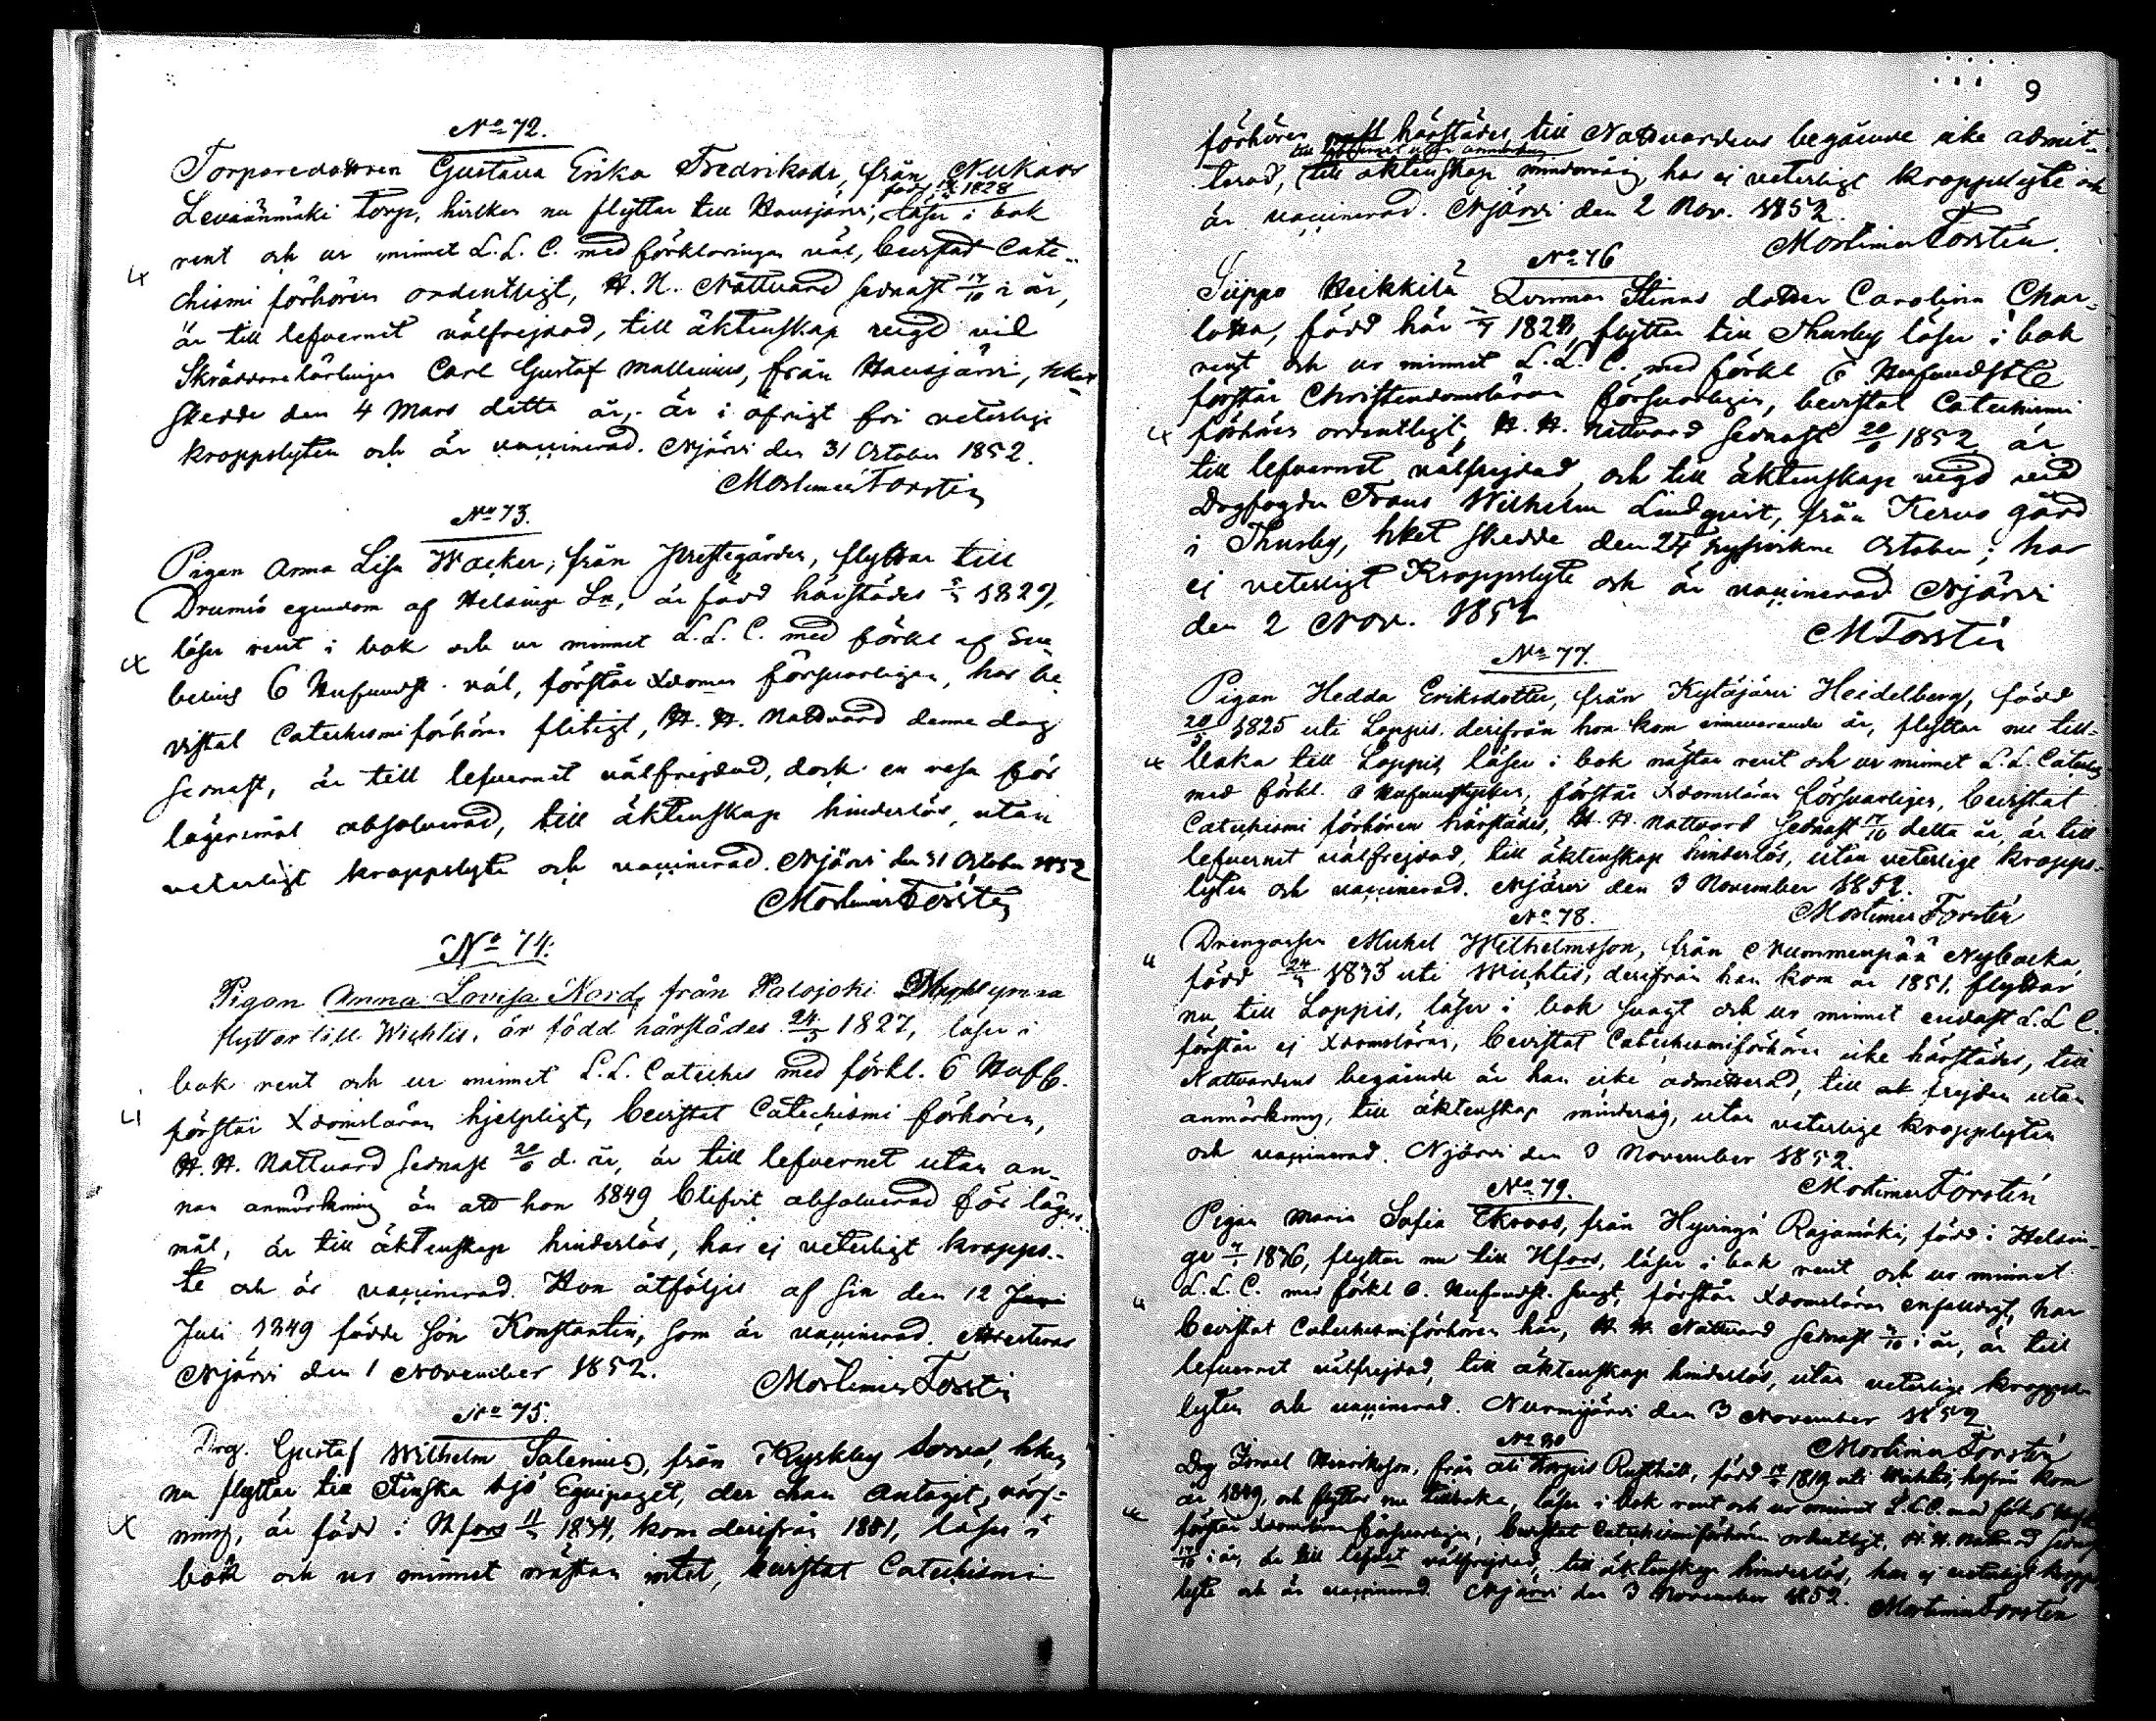 No 72.
Torparedottren Gustava Erika Fredriksdr, från Nukari
född 1828
Leväänmäki torp, hvilken nu flyttar till Hausjärvi, läser i bok
rent och ur minnet L. L. C. med förklaringen väl, bevistat Cate-
chismi förhören ordentligt, H. H. Nattvard sednast 17/10 i år,
är till lefvernet välfrejdad, till äktenskap vigd vid
Skräddarelärlingen Carl Gustaf Mallenius, från Hausjärvi, hket
skedde den 4 Mars detta år, är i öfrigt fri veterlige
kroppslyten och är vaccinerad. Njärvi den 31 October 1852.
Mortimer Forstén
No 73.
Pigan Anna Lisa Wacker, från Prestegården, flyttar till
Drumsö egendom af Helsinge Sn, är född härstädes 1829,
läser rent i bok och ur minnet L. L. C. med förkl af Sve-
belius 6 Hufvudst. väl, förstår Xdomen försvarligen, har be-
vistat Catechismiförhören flitigt, H. H. Nattvard denna dag
sednast, är till lefvernet välfrejdad, dock en resa för
lägersmål absolverad, till äktenskap hinderlös, utan
veterligt kroppslyte och vaccinerad. Njärvi den 31 October 1852
Mortimer Forstén
No 74.
Pigan Anna Lovisa Nord, från Palojoki
flyttar till Wichtis, är född härstädes 24/5 1827, läser i
bok rent och ur minnet L. L. Catechis med förkl. 6 Hufb.
förstår Xdomsläran hjelpligt, bevistat Catechismi förhören,
H. H. Nattvard sednast 20/6 d. år, är till lefvernet utan an-
nan anmärkning än att hon 1849 blifvit absolverad för lägers-
mål, är till äktenskap hinderlös, har ej veterligt kropps-
te och är vaccinerad. Hon åtföljes af sin den 12 Juni
Juli 1849 födde son Konstantin, som är vaccinerad. Attesteras
Njärvi den 1 November 1852.
Mortimer Forstén
No 75.
Drg. Gustaf Wilhelm Salenius, från Kyrkby Sorva, hken
nu flyttar till Finska Sjö Equipaget, der han antagit värf-
ning, är född i Hfors 11 1834, kom derifrån 1851, läser i
bok och ur minnet nästan intet, bevistat Catechismi
9
förhören härstädes, till Nattvardens begående icke admit-
till lefvernet utan anmärkning
terad, till äktenskap minderårig, har ej veterligt kroppslyte och
är vaccinerad. Njärvi den 2 Nov. 1852.
Mortimer Forstén.
No 76
Seppo Heikkilä Stinas dotter Carolina Char-
lotta, född här 182 flyttar till Thusby läser i bok
rent och ur minnet L. L. C. med förkl 6 Hufvudst
förstår Christendomsläran försvarligen, bevistat Catechismi
förhören ordentligt, H. H. Nattvard sednast 20/6 1852 är
till lefvernet välfrejdad och till äktenskap vigd vid
Drgfogden Frans Wilhelm Lindqvist, från Kervo gård
i Thusby, hket skedde den 24 October; har
ej veterligt Kroppslyte och är vaccinerad Njärvi
den 2 Nov. 1852
M Forstén
No 77.
Pigan Hedda Eriksdotter, från Kytäjärvi Heidelberg, född
20/5 1825 uti Loppis, derifrån hon kom innevarande år, flyttar nu till-
baka till Loppis, läser i bok nästan rent och ur minnet L. L. Cateches
med förkl. 6 Hufvudstycken, förstår Xdomsläran försvarligen, bevistat
Catechismi förhören härstädes, H. H. Nattvard sednast 17/10 detta år, är till
lefvernet välfrejdad, till äktenskap hinderlös, utan veterlige kropps-
lyten och vaccinerad. Njärvi den 3 November 1852.
Mortimer Forstén
No 78.
Drengossen Mickel Wilhelmsson, från Nummenpää Nybacka,
född 24 1833 uti Wichtis, derifrån han kom år 1851, flyttar
nu till Loppis, läser i bok svagt och ur minnet endast L. L C.
förstår ej Xdomsläran, bevistat Catechismiförhören icke härstädes, till
Nattvardens begående är han icke admitterad, till frejden utan
anmärkning, till äktenskap minderårig, utan veterlige kroppslyten
och vaccinerad. Njärvi den 3 November 1852.
Mortimer Forstén
No 79.
Pigan Maria Sofia Ekroos, från Hyvingä Rajamäki, född i Helsin-
ge 1836, flyttar nu till Hfors, läser i bok rent och ur minnet
L. L. C. med förkl 6. Hufvudst. svagt, förstår Xdomsläran enfaldigt, har
bevistat Catechismiförhören här, H. H. Nattvard sednast i år, är till
lefvernet välfrejdad, till äktenskap hinderlös, utan veterlige kropps-
lyten och vaccinerad. Nurmijärvi den 3 November 1852
Mortimer Forstén
No 80
Drg Israel Henriksson, från Ali Rusthåll, född 1819 uti Wichtis, hvfrån kom
år 1849, och flyttar nu tillbaka, läser i bok rent och ur minnet L. L. C. med förkl 6
förstår Xdomsläran försvarligen, bevistat Catechismiförhören ordentligt, H. H. Nattvard sednast
17/10 i år, är till lefvernet välfrejdad, till äktenskap hinderlös, har ej veterligt kropps-
lyte och är vaccinerad Njärvi den 3 November 1852.
Mortimer Forstén